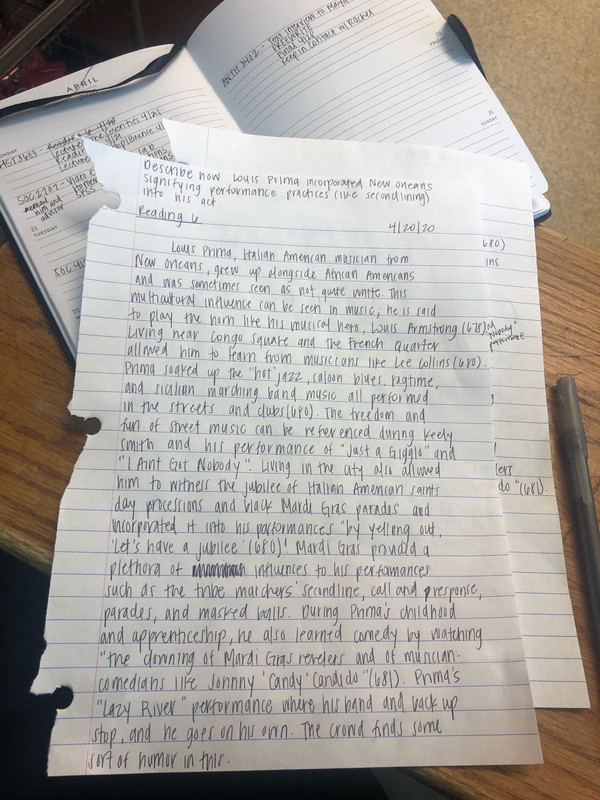 APRIL
ANTH 2402 - Text interview to Maya
Final 4/28
Keep in contact w/ Rachel
HST 3603 - Reading 6 4/20
Lecture
SOC 2107 - Video
him and
advisor
21
TUESDAY
SOC
SUNDAY
Describe how Louis Prima incorporated New Orleans
signifying performance practices (like secondlining)
into his act.
Reading 6
4/20/20
Louis Prima, Italian American musician from
New Orleans, grew up alongside African Americans
and was sometimes seen as not quite white. This
multicultural influence can be seen in music, he is said
to play the horn like his musical hero, Louis Armstrong (678).
Living near Congo Square and the French Quarter
allowed him to learn from musicians like Lee Collins (680).
Prima soaked up the "hot" jazz, saloon blues, ragtime,
and sicilian marching band music all performed
in the streets and clubs (680). The freedom and
fun of street music can be referenced during Keely
Smith and his performance of "Just a Gigglo" and
"I Aint Got Nobody". Living in the city also allowed
him to witness the jubilee of Italian American saints
day processions and black Mardi Gras parades and
incorporated it into his performances "by yelling out,
'Let's have a jubilee' (680)! Mardi Gras provided a
plethora of influences to his performances
such as the tribe marchers' secondline, call and response,
parades, and masked balls. During Prima's childhood
and apprenticeship, he also learned comedy by watching
"the clowning of Mardi Gras revelers and of musician-
comedians like Johnny 'Candy' Candido" (681). Prima's
"Lazy River" performance where his band and back up
stop, and he goes on his own. The crowd finds some
sort of humor in this.
680)
ins
Nobody"
performance
lers
do" (681).